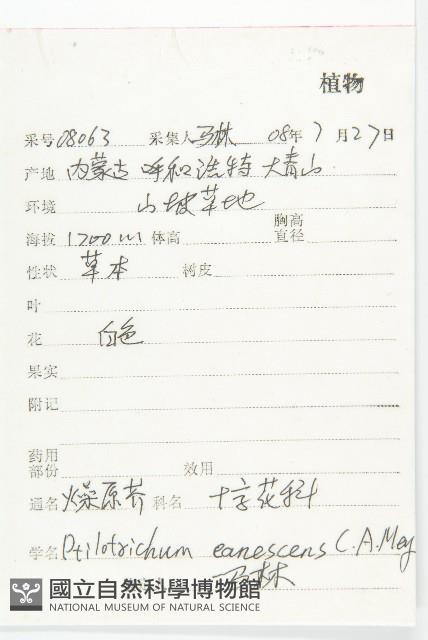 植物
采号 08063 采集人 马林 08年 7月27日
产地 内蒙古 呼和浩特 大青山
环境 山坡草地
海拔 1200m 体高 胸高直径
性状 草本 树皮
叶
花 白色
果实
附记
药用部份 效用
通名 燥原荠 科名 十字花科
学名 Ptilotrichum canescens C.A.Mey
马林
國立自然科學博物館
NATIONAL MUSEUM OF NATURAL SCIENCE